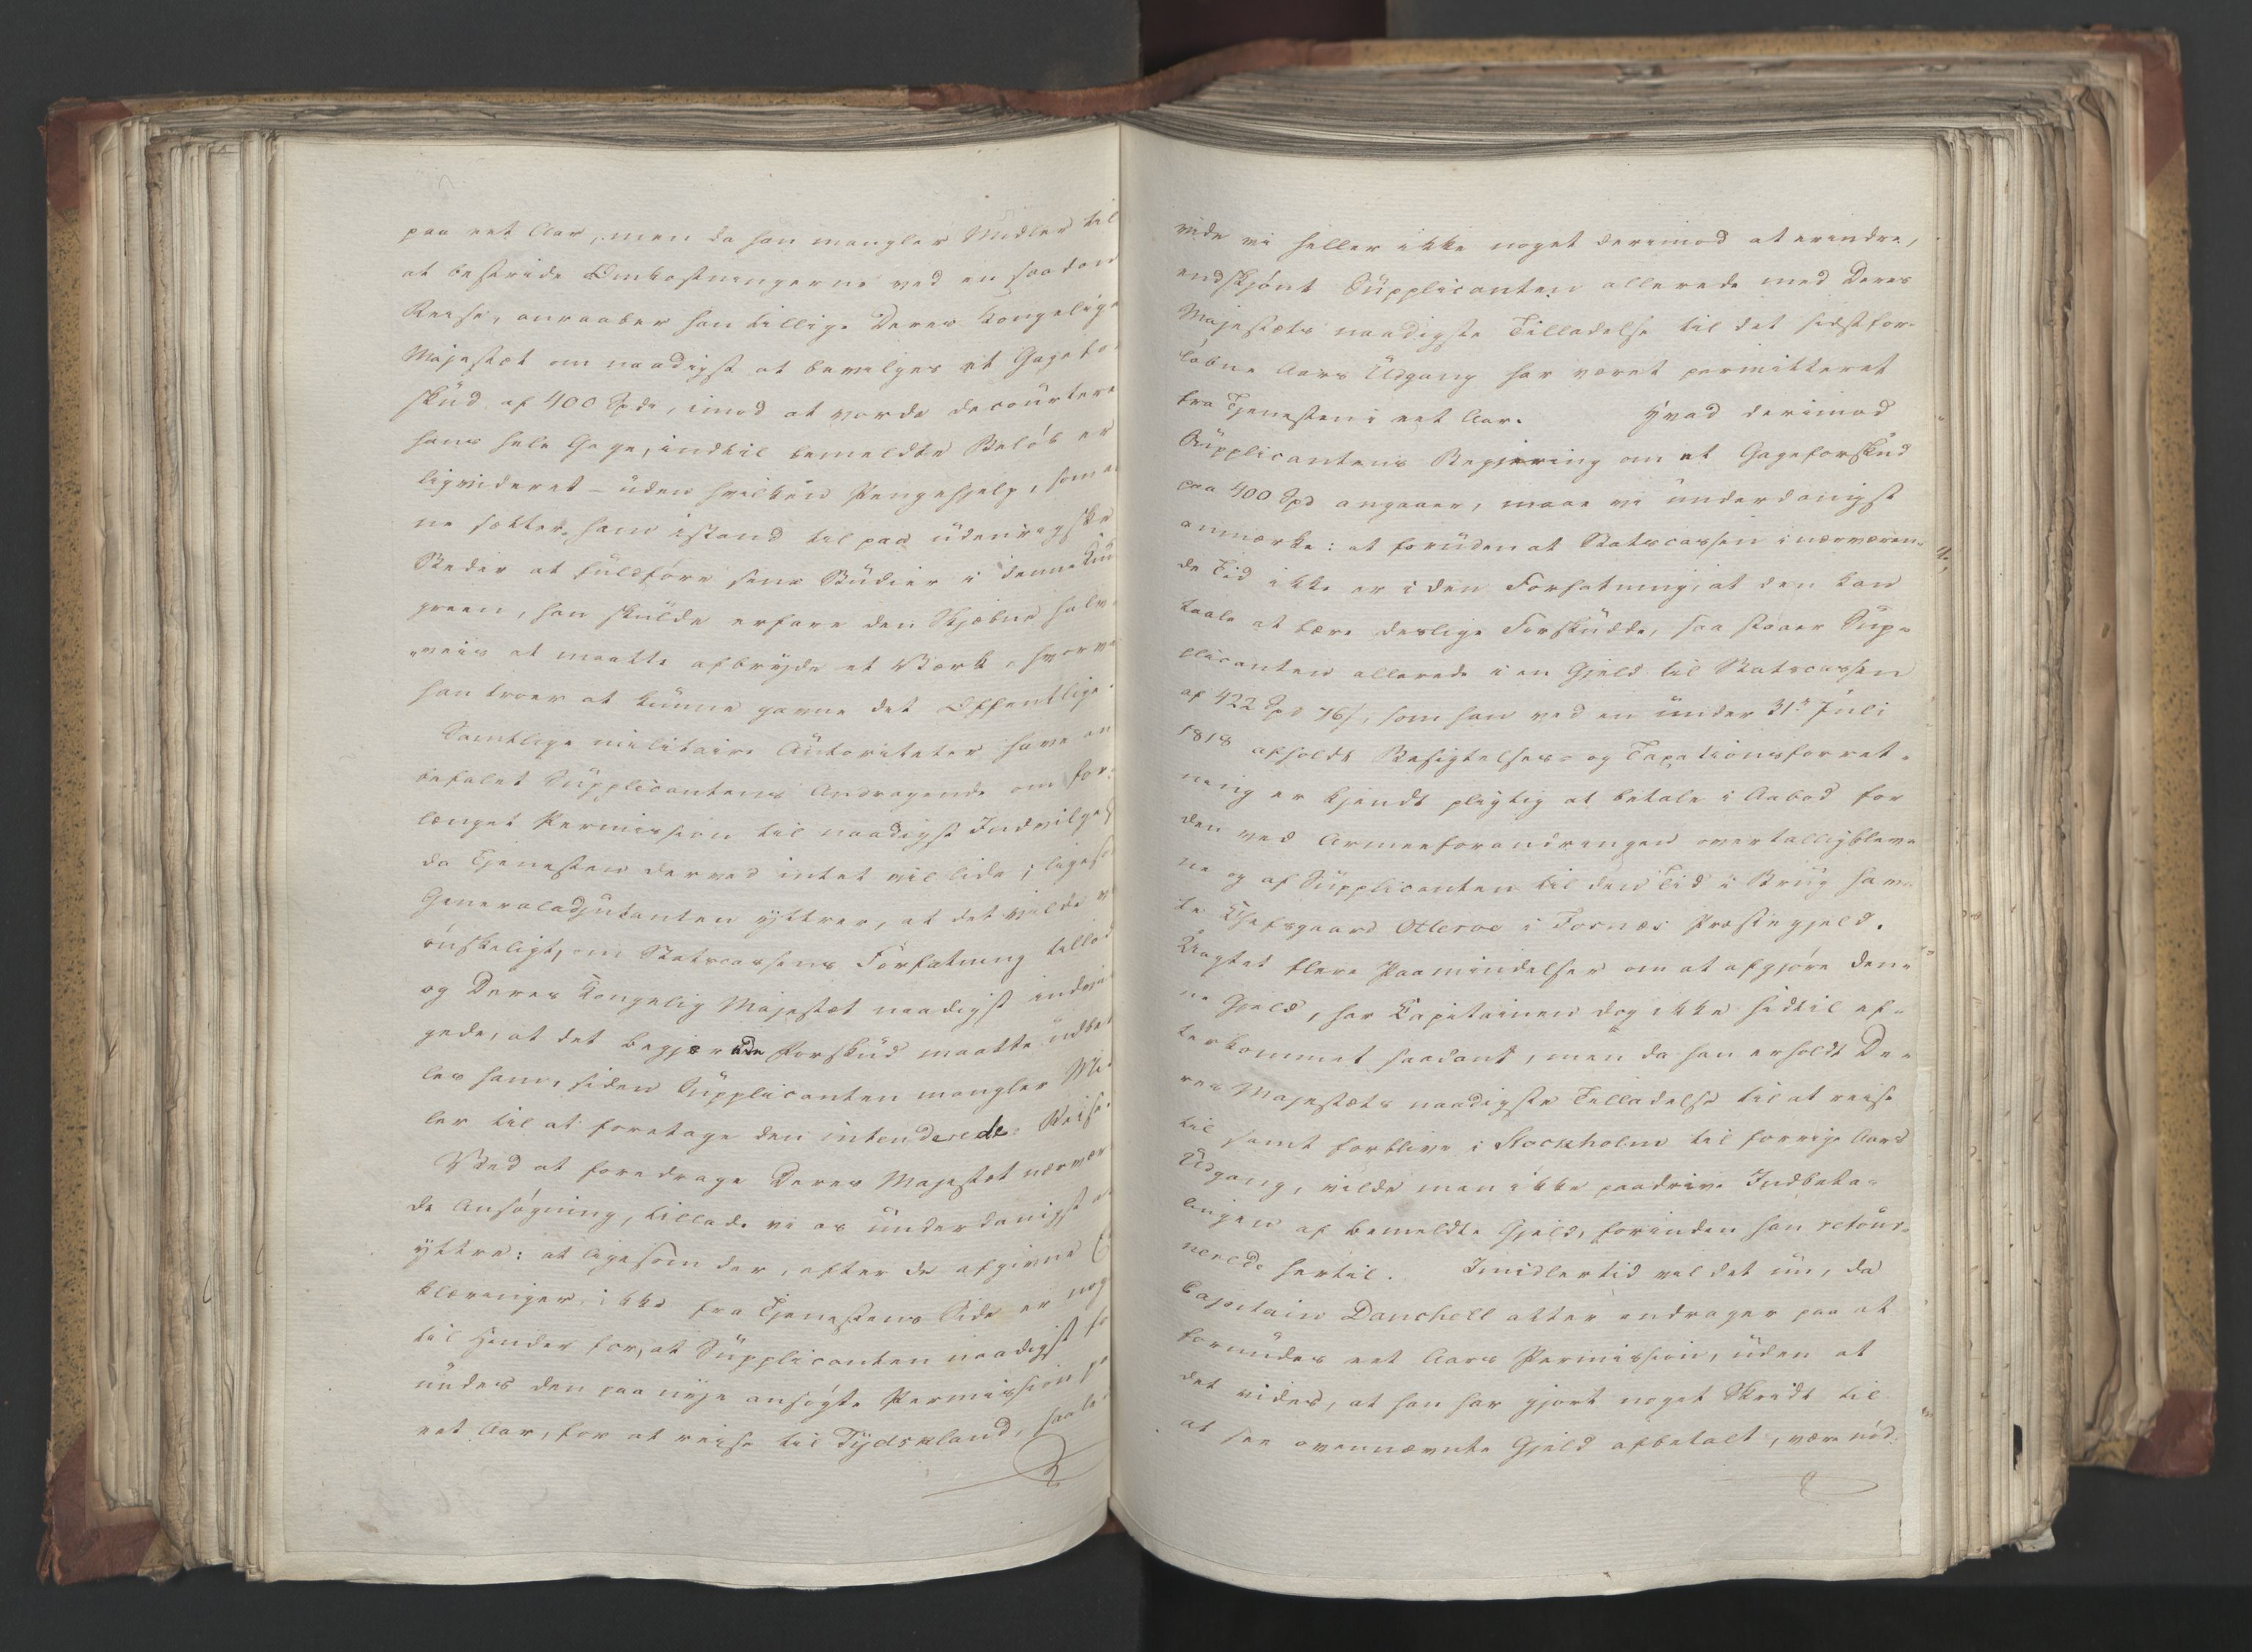 paa eet Aar, men da han mangler Midler til
at bestride Omkostningerne ved en saadan
Reise, anraaber han tillige Deres Kongelige
Majestæt om naadigst at bevilges et Gagefo
skud af 400 Spdr, imod at vorde decourteret
hans hele Gage, indtil bemeldte Beløb er
ligvideret – uden hvilken Pengehjelp, som
ne sætter ham istand til paa udenrigske
Steder at fuldføre sine Studier i denne
green, han skulde erfare den Skjæbne halv-
veis at maatte afbryde et Værk, hvorve
han troer at kunne gavne det Offentlige.
Samtlige militaire Autoriteter have an
befalet Supplicantens Andragende om for-
længet Permission til naadigst Indvilgel
da Tjenesten derved intet vil lide; ligeso
Generaladjutanten yttrer, at det vilde v
ønskeligt, om Statscassens Forfatning tillod
og Deres Kongelig Majestæt naadigst indvil
gede, at det begjærede Forskud maatte udbet
les ham, siden Supplicanten mangler Mi
ler til at foretage den intenderede Reise.
Ved at foredrage Deres Majestæt nærvær
de Ansøgning, tillade vi os underdanigst at
yttre: at ligesom der, efter de afgivne E
klæringer, ikke fra Tjenestens Side er nog
til Hinder for, at Supplicanten naadigst fo
undes den paa nye ansøgte Permission p
eet Aar, for at reise til Tydskland, saale
vide vi heller ikke noget derimod at erindre,
endskjønt Supplicanten allerede med Deres
Majestæts naadigste Tilladelse til det sidstfor-
løbne Aars Udgang har været permitteret
fra Tjenesten i eet Aar. Hvad derimod
Supplicantens Begjering om et Gageforskud
paa 400 Spd angaaer, maae vi underdanigst
anmærke: at foruden at Statscassen i nærværen-
de Tid ikke er i den Forfatning, at den kan
taale at bære deslige Forskudde, saa staaer Sup-
plicanten allerede i en Gjeld til Statscassen
af 422 Spd 76 s, som han ved en under 31te Juli
1818 afholdt Besigtelses- og Taxationsforret-
ning er kjendt pligtig at betale i Aabod for
den ved Armeeforandringen overtalligblev-
ne og af Supplicanten til den Tid i Brug hav-
te Chefsgaard Otteroe i Fosnæs Præstegjeld.
Uagtet flere Paamindelser om at afgjøre den-
ne Gjeld, har Capitainen dog ikke hidtil ef-
terkommet saadant, men da han erholdt De-
res Majestæts naadigste Tilladelse til at reise
til samt forblive i Stockholm til forrige Aars
Udgang, vilde man ikke paadrive Indbeta-
lingen af bemeldte Gjeld, forinden han retour-
nerede hertil. Imidlertid vil det nu, da
Capitain Danchell atter andrager paa at
forundes eet Aars Permission, uden at
det vides, at han har gjort noget Skridt til
at see ovennævnte Gjeld afbetalt, være nød-